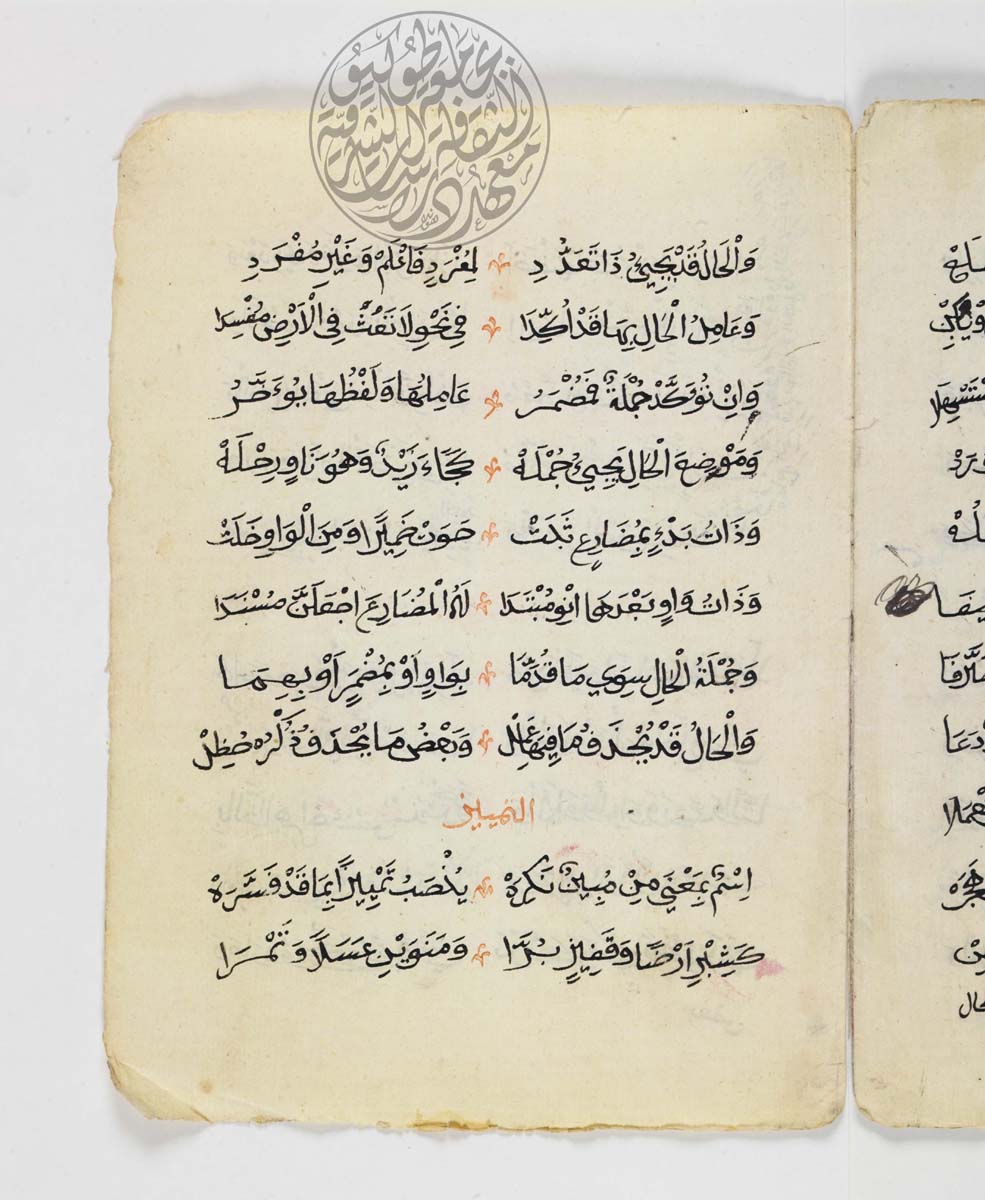 وَالْحَالُ قَدْ يَجِيئُ ذَا تَعَدُّدِ لِمُفْرَدٍ فَاعْلَمْ وَغَيْرِ مُفْرَدِ
وَعَامِلُ الْحَالِ بِهَا قَدْ اُكِّدَا فِي نَحْوِ لَا تَعْثَ فِي الْاَرْضِ مُفْسِدَا
وَاِنْ تُؤَكِّدْ جُمْلَةً فَمُضْمَرُ عَامِلُهَا وَلَفْظُهَا يُوءَخَّرُ
وَمَوْضِعَ الْحَالِ يَجِيئُ جُمْلَهْ كَجَاءَ زَيْدٌ وَهُوَ نَاوٍ رِحْلَهْ
وَذَاتُ بَدْءٍ بِمُضَارِعٍ ثَبَتْ حَوَتْ ضَمِيرًا وَمِنَ الْوَاوِ خَلَتْ
وَذَاتُ وَاوٍ بَعْدَهَا انْوِ مُبْتَدَا لَهُ الْمُضَارِعَ اجْعَلَنَّ مُسْنَدَا
وَجُمْلَةُ الْحَالِ سِوَي مَا قُدِّمَا بِوَاوٍ اَوْ بِمُضْمَرٍ اَوْ بِهِمَا
وَالْحَالُ قَدْ يُحْذَفُ مَا فِيهَا عَمِلْ وَبَعْضُ مَا يُحْذَفُ ذِكْرُهُ حُظِلْ
التمييز
اِسْمٌ بِمَعْنَي مِنْ مُبِينٌ نَكِرَهْ يُنْصَبُ تَمْيِيزًا بِمَا قَدْ فَسَّرَهْ
كَشِبْرٍ اَرْضًا وَقَفِيزٍ بُرَّا وَمَنَوَيْنِ عَسَلًا وَتَمْرَا